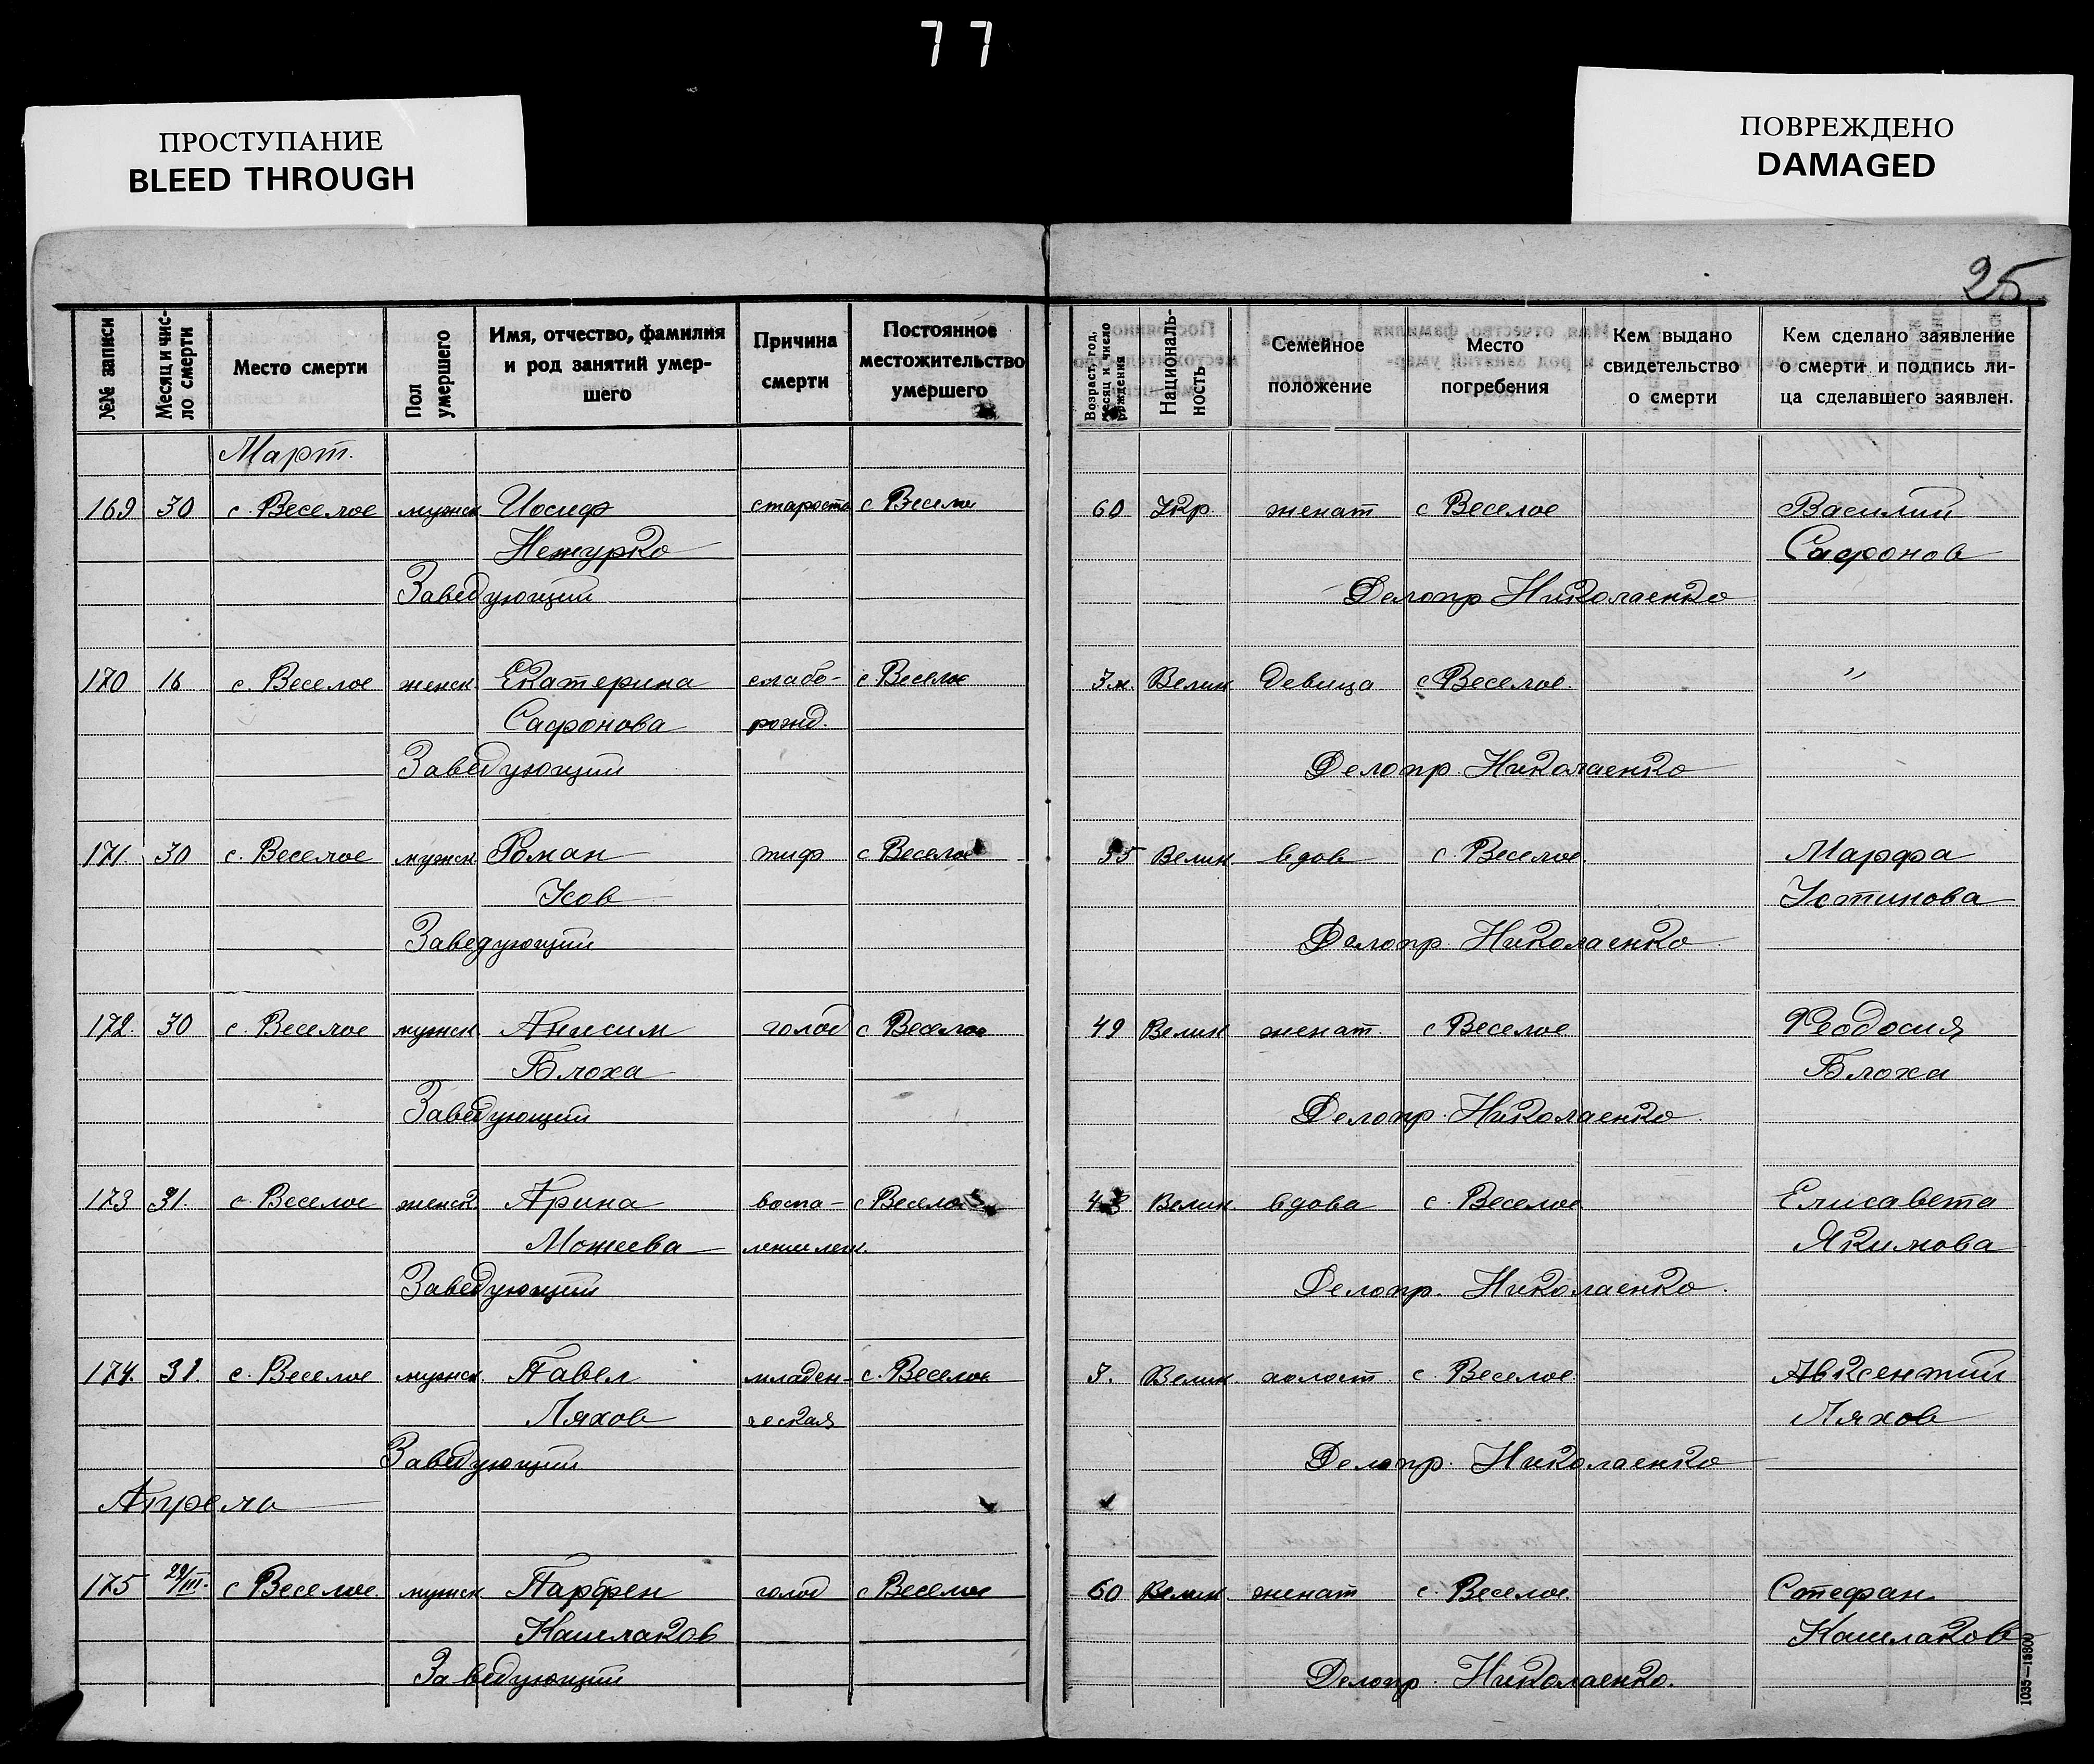 77
ПРОСТУПАНИЕ
BLEED THROUGH
ПОВРЕЖДЕНО
DAMAGED
25
№№ записи
Месяц и чис-
ло смерти
Место смерти
Пол
умершего
Имя, отчество, фамилия
и род занятий умер-
шего
Причина
смерти
Постоянное
местожительство
умершего
Возраст, год,
месяц и число
рождения
Националь-
ность
Семейное
положение
Место
погребения
Кем выдано
свидетельство
о смерти
Кем сделано заявление
о смерти и подпись ли-
ца сделавшего заявлен.
Март.
169 30 с. Веселое мужск Иосиф старость с Веселое 60 Укр женат с Веселое Василий
Нежурко Сафонов
Заведующий Делопр Николаенко
170 16 с. Веселое женск. Екатерина слабо- с Веселое 3 м. Велик. девица с Веселое. "
Сафонова рожд.
Заведующий Делопр. Николаенко
171. 30 с. Веселое мужск. Роман тиф с Веселое 35 Велик. вдов с. Веселое. Марфа
Усов Устинова
Заведующий Делопр. Николаенко
172. 30 с. Веселое мужск. Анисим голод с Веселое 49 Велик женат. с Веселое Феодосия
Блоха Блоха
Заведующий Делопр. Николаенко
173 31. с. Веселое женск. Арина воспа- с Веселое 43 Велик. вдова с. Веселое Елисавета
Можеева ление лег. Якимова
Заведующий Делопр. Николаенко.
174. 31. с. Веселое мужск. Павел младен- с. Веселое 3. Велик холост. с. Веселое Авксентий
Ляхов ческая Ляхов
Заведующий Делопр. Николаенко
Апрель
175 29/III. с Веселое. мужск Парфен голод с Веселое 60 Велик. женат с. Веселое. Стефан
Кашлаков Кашлаков
Заведующий Делопр. Николаенко.
1035—15800